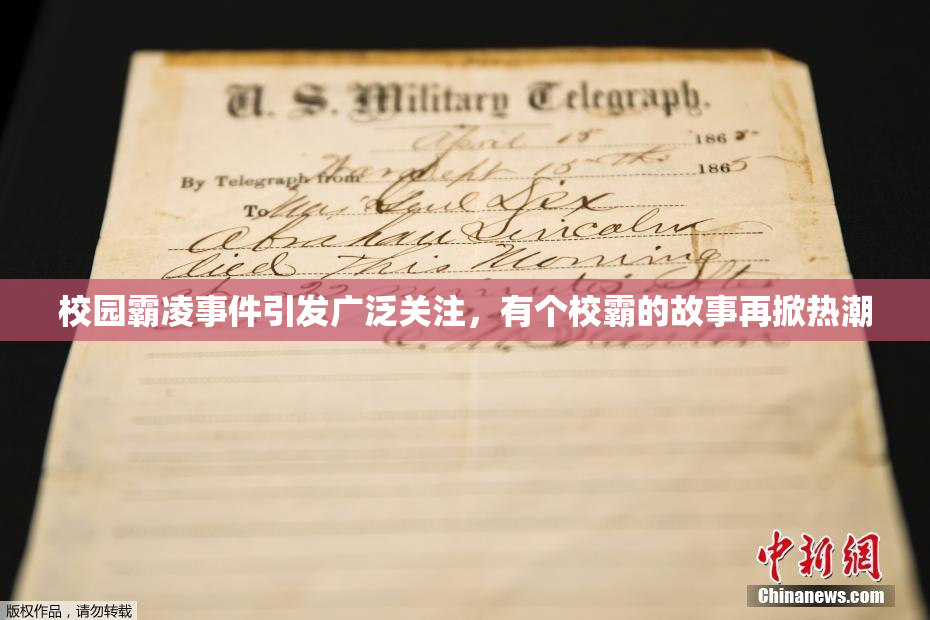 U. S. Military Telegraph.
April 15 1865
By Telegraph from War Dept 15th 1865
To Maj Genl Dix
Abraham Lincoln
died This Morning
22 minutes after
校园霸凌事件引发广泛关注，有个校霸的故事再掀热潮
E. M. Stanton
中新网
Chinanews.com
版权作品，请勿转载